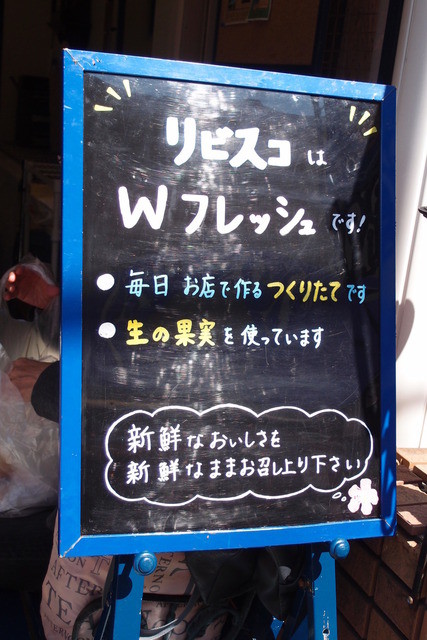 リビスコは
Wフレッシュです!
● 毎日 お店で作るつくりたてです
● 生の果実を使っています
新鮮なおいしさを
新鮮なままお召し上り下さい
AFTER